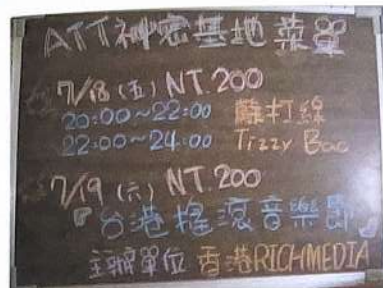 ATT神密基地菜單
7/18 (五) NT.200
20:00~22:00 蘇打綠
22:00~24:00 Tizzy Bac
7/19 (六) NT.200
『台港搖滾音樂節』
主辦單位 香港RICHMEDIA